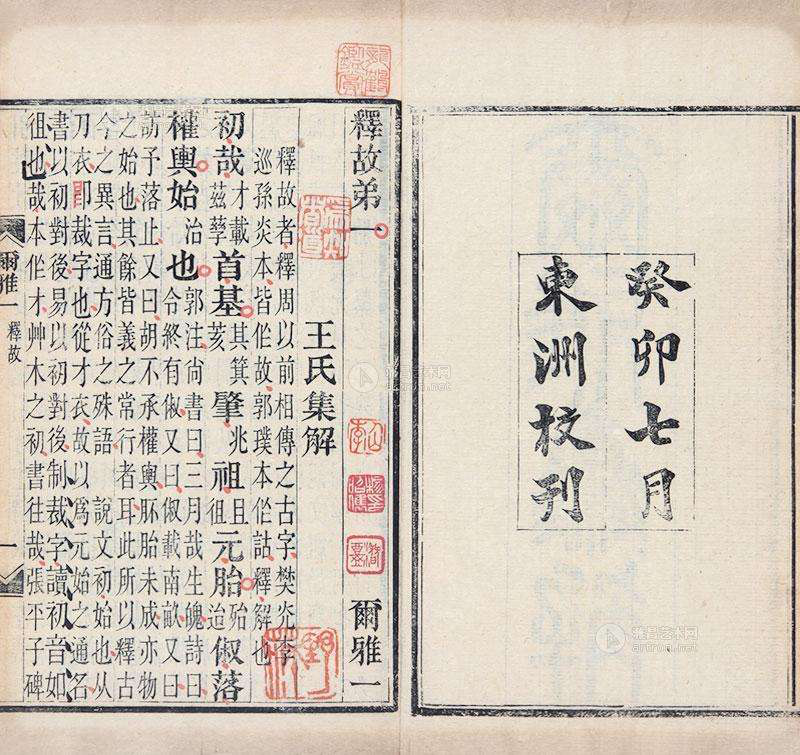 癸卯七月
東洲校刊
釋故弟一
爾雅一
王氏集解
釋故者釋周以前相傳之古字樊光李
巡孫炎本皆作故郭璞本作詁釋解也
初哉才載茲孳首基其箕亥肇兆祖且元胎殆迨俶落
權輿始治也郭注尚書曰三月哉生魄詩曰
令終有俶又曰俶載南畝又曰
訪予落止又曰胡不承權輿胚胎未成亦物
之始也其餘皆義之常行者耳此所以釋古
今之異言通方俗之殊語 說文初始也从
刀衣卽裁字也從才衣故以爲元始之通名
書以初對後易以初對後制裁字讀初音如
徂也哉本作才艸木之初書往哉張平子碑
爾雅一 釋故 一
雅昌艺术网
artron.net